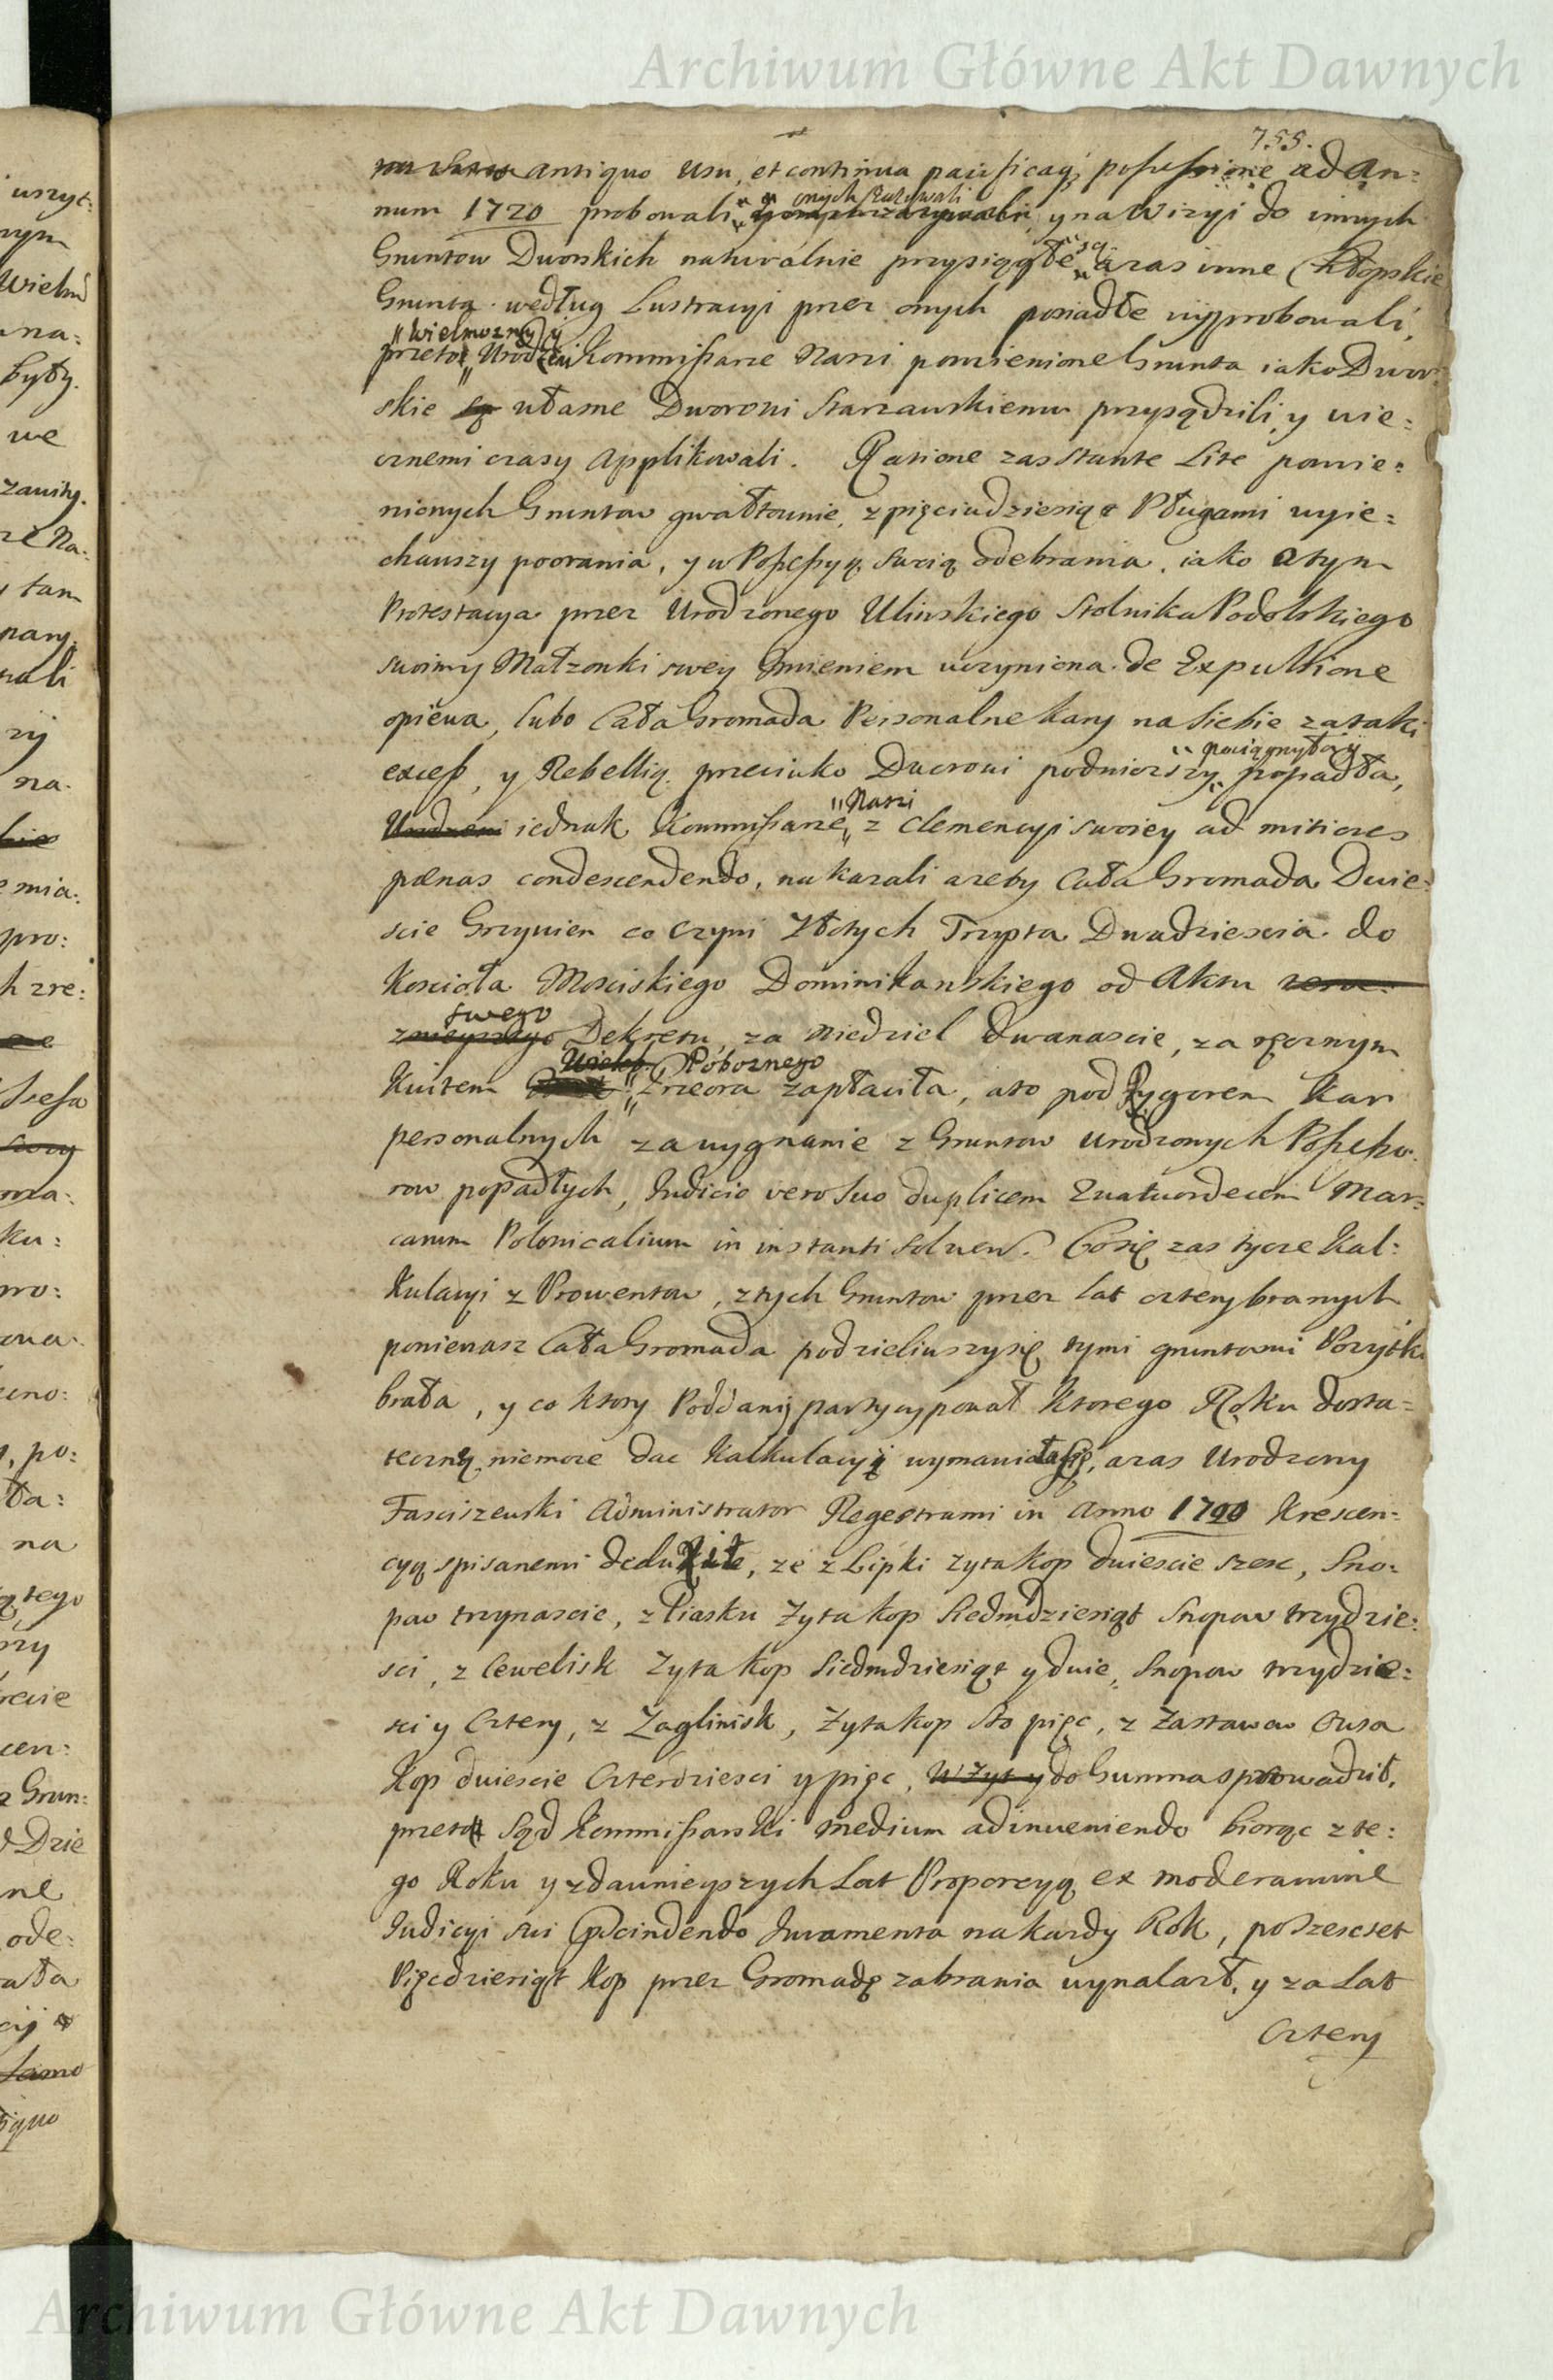 Archiwum Główne Akt Dawnych
755.
antiquo usu, et continua pacificaq; possessione ad An:
num 1720 probowali, onych y na Wizyi do innych
Gruntow Dworskich naturalnie przysiągłe są aras inne Chłopskie
Grunta według Lustracyi przez onych posiadłe wyprobowali,
Wielmożny y
przeto Urodzeni Kommissarze Nasi pomienione Grunta iako Dwor:
skie są własne Dworowi Starzawskiemu przysądzili, y wie:
cznemi czasy Applikowali. Ratione zas stante Lite pomie:
nionych Gruntow gwałtownie, z pięciudziesiąt Pługami wyie:
chawszy poorania, y w Possessyą swoią odebrania, iako o tym
Protestacya przez Urodzonego Ulinskiego Stolnika Podolskiego
swoim y Małzonki swey Imieniem uczyniona de Expulsione
opiewa, lubo Cała Gromada Personalne kary na siebie za taki
exces, y Rebellią przeciwko Dworowi podniosszy popadła,
Urodzeni iednak Kommissarze Nasi z Clemencyi swoiey ad mitiores
pœnas condescendendo, nakazali azeby Cała Gromada Dwie:
scie Grzywien co czyni Złotych Trzysta Dwadziescia do
Kosciola Mosciskiego Dominikanskiego od Aktu
swego
Dekretu, za Niedziel dwanascie, za ręcznym
Pobożnego
Kwitem Przeora zapłaciła, a to pod Rygorem kar
personalnych za wygnanie z Gruntow Urodzonych Possesso:
row popadłych, Iudicio vero suo duplicem Quatuordecim Mar:
carum Polonicalium in instanti solven. Co się zas tycze Kal:
kulacyi z Prowentow, z tych Gruntow przez lat cztery branych
poniewasz Cała Gromada podzieliwszy się tymi gruntami Pozytki
brała, y co ktory Poddany partycypował ktorego Roku dosta:
teczny niemoze dac Kalkulacyi wymawiała się, aras Urodzony
Fasciszewski Administrator Regestrami in Anno 1720 Krescen:
cyą spisanemi dedu, że z Lipki żyta kop dwiescie szesc, Sno:
pow trzynascie, z Piasku Zyta kop Siedmdziesiąt Snopow trzydzie:
sci, z Cewelisk Zyta kop Siedmdziesiąt y dwie, Snopow trzydzie:
sci y Cztery, z Zaglinisk, Zyta kop sto pięc, z Zastawow Owsa
kop dwiescie Czterdziesci y pięc, W Zyt y do Summa sprowadził,
przeto Sąd Kommissarski medium adinveniendo biorąc z te:
go Roku y z dawnieyszych Lat Proporcyą ex moderamine
Iudicyi sui Pscindendo Iuramenta na kazdy Rok, po szescset
Pięcdziesiąt kop przez Gromadę zabrania wynalazł, y za Lat
Cztery
Archiwum Główne Akt Dawnych